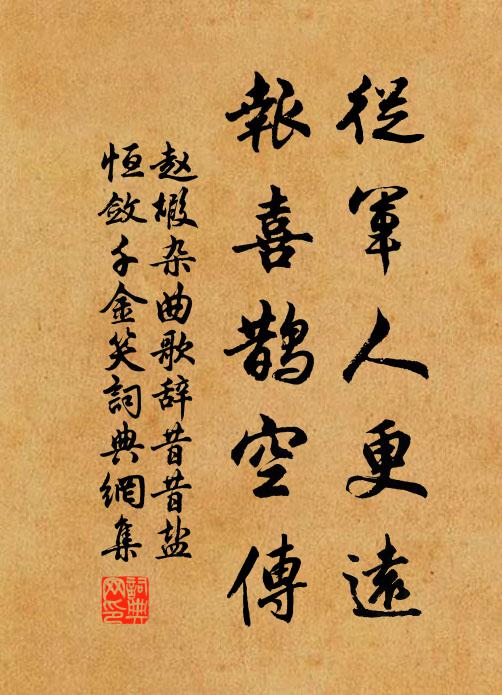 從軍人更遠
報喜鵲空傳
赵椵杂曲歌辞昔昔盐
恒斂千金笑詞典網集
詞典网印